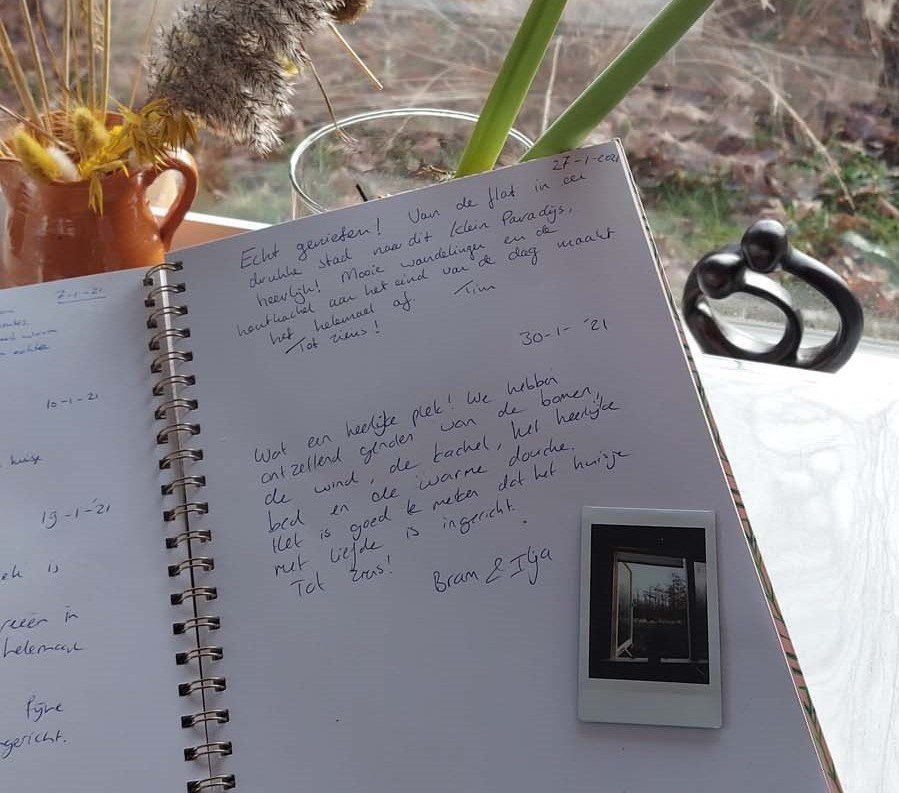 7-1-'21
10-1-21
huisje
19-1-'21
is
in
helemaal
fijne
27-1-2021
Echt genieten! Van de flat in een
drukke stad naar dit klein Paradijs,
heerlijk! Mooie wandelingen en de
houtkachel aan het eind van de dag maakt
het helemaal af Tim
Tot ziens!
30-1-'21
Wat een heerlijke plek! We hebben
ontzettend genoten van de bomen,
de wind, de kachel, het heerlijke
bed en de warme douche.
Het is goed te merken dat het huisje
met liefde is ingericht.
Tot ziens! Bram & Ilja